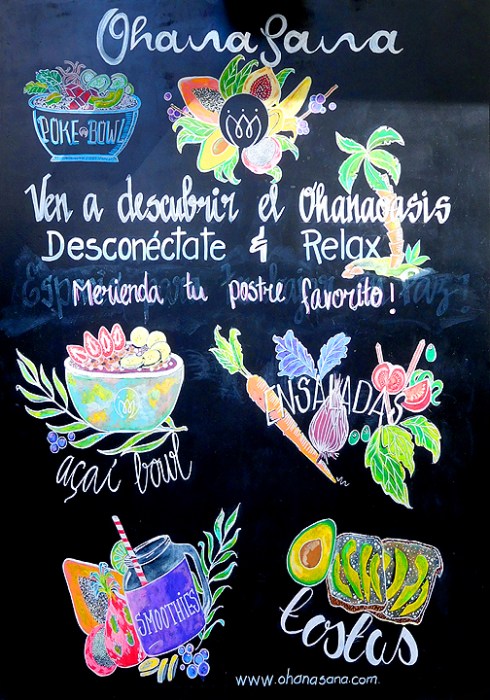 Ohana Sana
POKE BOWL
Ven a descubrir el Ohanaoasis
Desconéctate & Relax
Merienda tu postre favorito!
ENSALADAS
açaí bowl
SMOOTHIES
tostas
www.ohanasana.com